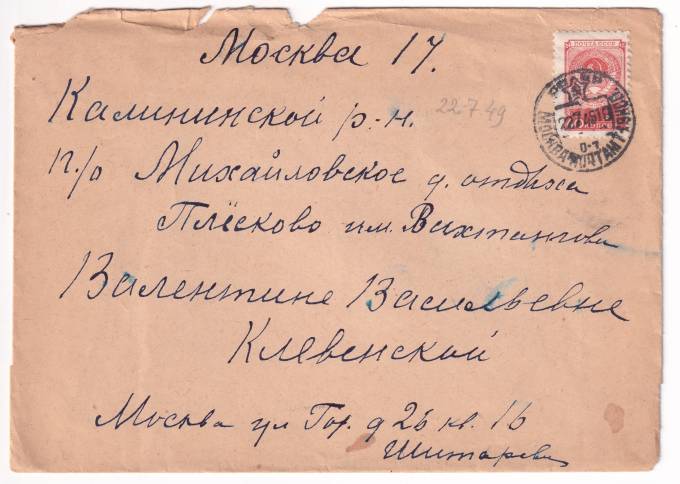 Москва 17.
Калининской р-н.
22.7.49
п/о Михайловское д. отдыха
Плёсково им. Вахтангова
Валентине Васильевне
Клевенской
Москва ул Гор. д 26 кв. 16
Шитарева
ПОЧТА СССР
МОСКВА ПОЧТАМТ